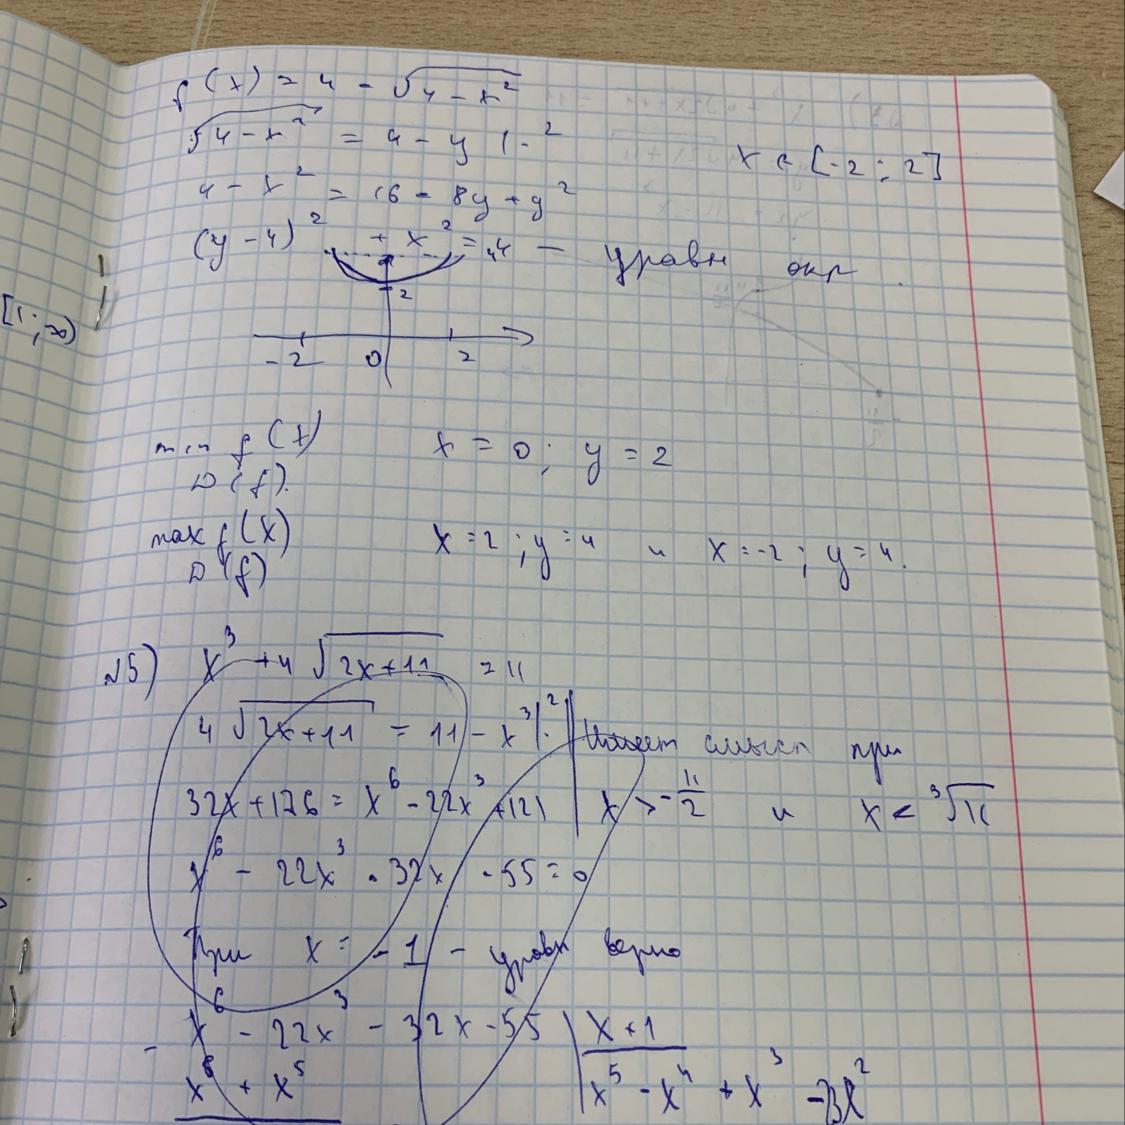 f(x) = 4 - √(4 - x²)
√(4 - x²) = 4 - y |·²
x ∈ [-2 ; 2]
4 - x² = 16 - 8y + y²
(y - 4)² + x² = 4 — уравн окр.
[1 ; ∞)
2
-2 0 2
min f(x) x = 0 ; y = 2
D(f).
max f(x) x = 2 ; y = 4 и x = -2 ; y = 4.
D(f)
№5) x³ + 4√(2x+11) = 11
4√(2x+11) = 11 - x³ |·² Имеет смысл при
32x + 176 = x⁶ - 22x³ + 121 x > -11/2 и x < ³√11
x⁶ - 22x³ - 32x - 55 = 0
При x = -1 - уравн верно
x⁶ - 22x³ - 32x - 55 | x + 1
x⁶ + x⁵ x⁵ - x⁴ + x³